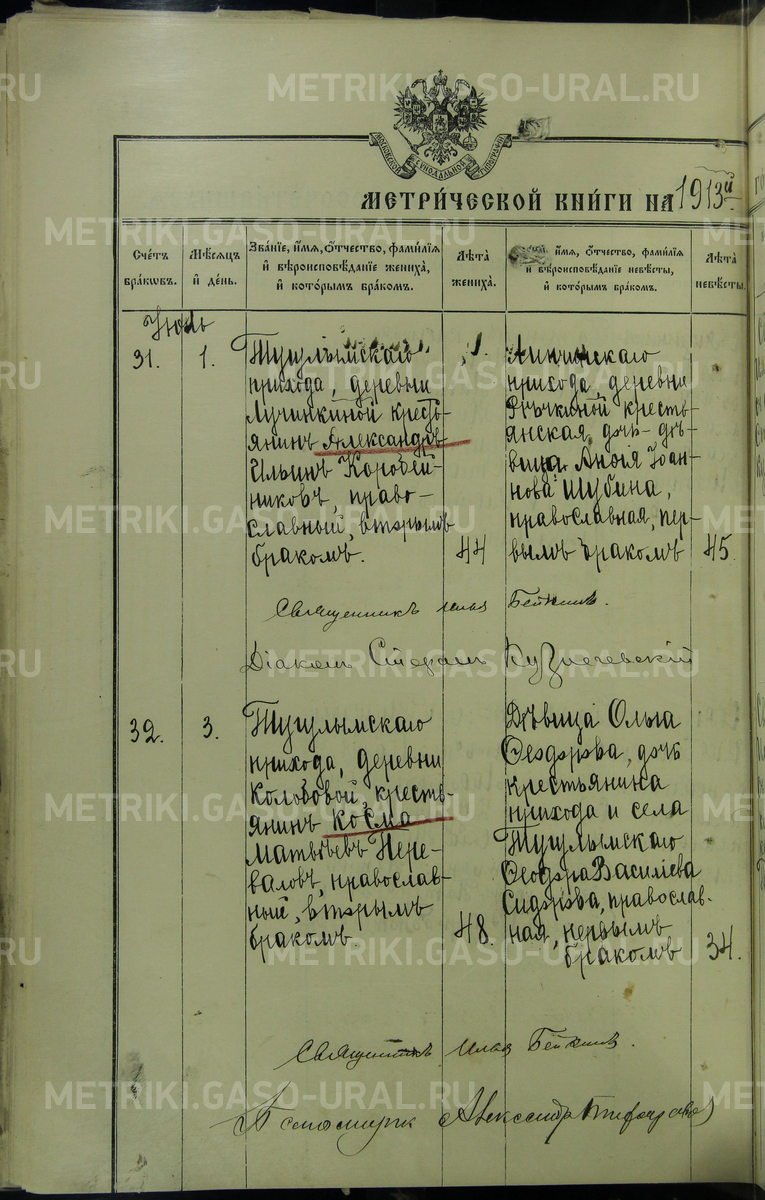 METRIKI.GASO-URAL.RU
МОСКОВСКОЙ СѴНОДАЛЬНОЙ ТИПОГРАФІИ
МЕТРИ́ЧЕСКОЙ КНИ́ГИ НА 1913й
Сче́тъ бра́кωвъ.
Мѣ́сяцъ и҆ де́нь.
Зва́нїе, и҆́мя, ѻ҆́тчество, фами́лїя и҆ вѣроисповѣ́данїе жениха̀, и҆ кото́рымъ бра́комъ.
Лѣ́та жениха̀.
и҆́мя, ѻ҆́тчество, фами́лїя и҆ вѣроисповѣ́данїе невѣ́сты, и҆ кото́рымъ бра́комъ.
Лѣ́та невѣ́сты.
Июль
31.
1.
Тугулымскаго
прихода, деревни
Лучинкиной кресть-
янинъ Александръ
Ильинъ Коробей-
никовъ, право-
славный, вторымъ
бракомъ.
44
прихода деревни
кресть-
янская дочь дѣ-
вица Анѳія Іоан-
нова Шубина,
православная, пер-
вымъ бракомъ
45.
Священникъ Илья
Діаконъ Стефанъ
32.
3.
Тугулымскаго
прихода, деревни
Колобовой, кресть-
янинъ Косма
Матвѣевъ Пере-
валовъ, православ-
ный, вторымъ
бракомъ.
48.
Дѣвица Ольга
Ѳеодорова, дочь
крестьянина
прихода и села
Тугулымскаго
Ѳеодора Василіева
Сидорова, православ-
ная, первымъ
бракомъ
34.
Священникъ Илья
Александръ